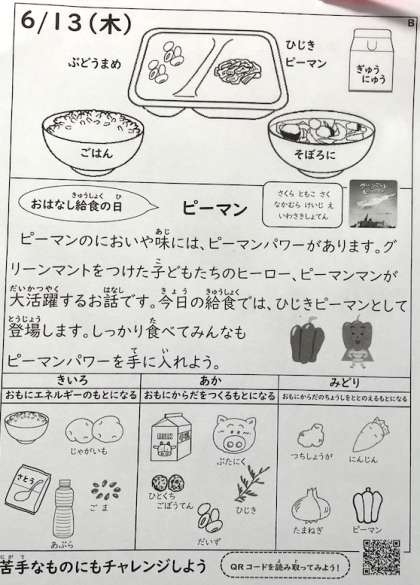 6/13(木)
B
ぶどうまめ
ひじき
ピーマン
ぎゅう
にゅう
ごはん
そぼろに
おはなし給食の日
きゅうしょく ひ
ピーマン
さくら ともこ さく
なかむら けいじ え
いわさきしょてん
ピーマンのにおいや味には、ピーマンパワーがあります。グ
あじ
リーンマントをつけた子どもたちのヒーロー、ピーマンマンが
こ
大活躍するお話です。今日の給食では、ひじきピーマンとして
だいかつやく はなし きょう きゅうしょく
登場します。しっかり食べてみんなも
とうじょう た
ピーマンパワーを手に入れよう。
て い
きいろ
おもにエネルギーのもとになる
あか
おもにからだをつくるもとになる
みどり
おもにからだのちょうしをととのえるもとになる
じゃがいも
さとう
ごま
あぶら
ぶたにく
ひとくち
ごぼうてん
ひじき
だいず
つちしょうが
にんじん
たまねぎ
ピーマン
苦手なものにもチャレンジしよう
にがて
QRコードを読み取ってみよう!